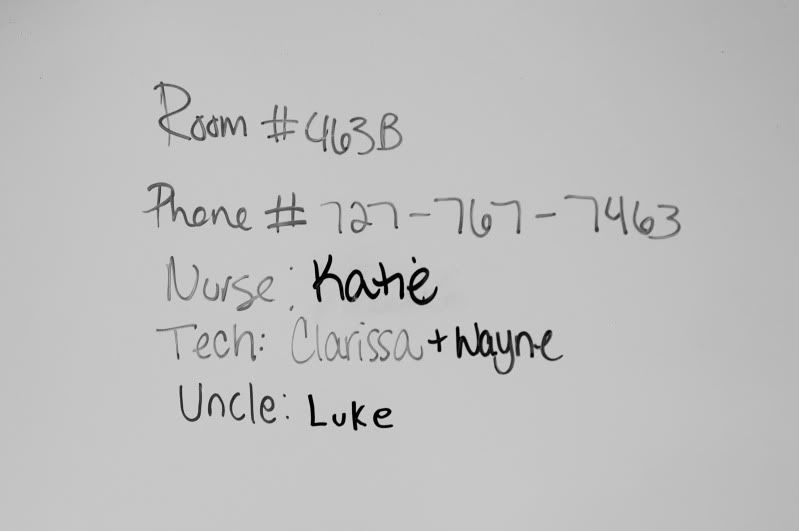 Room #463B
Phone # 727-767-7463
Nurse: Katie
Tech: Clarissa + Wayne
Uncle: Luke